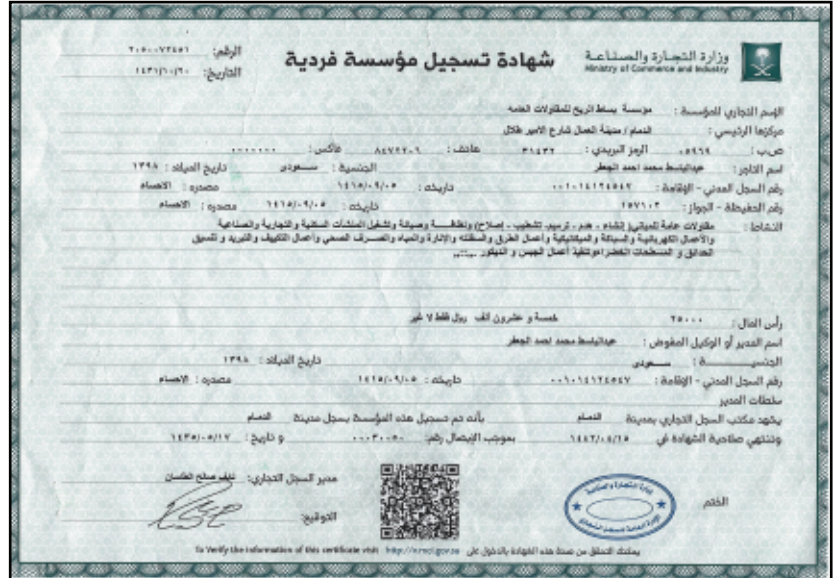 وزارة التجارة والصناعة
Ministry of Commerce and Industry
شهادة تسجيل مؤسسة فردية
الرقم:
التاريخ:
الإسم التجاري للمؤسسة : مؤسسة بساط الريح للمقاولات العامه
مركزها الرئيسي : الدمام / مدينة العمال شارع الامير طلال
ص.ب : ٠٥٩٦٩ الرمز البريدي : ٣١٤٣٢ هاتف : فاكس : ٠٠٠٠٠٠٠
اسم التاجر : عبدالباسط محمد احمد الجعفر الجنسية : سعودى تاريخ الميلاد : ١٣٩٨
رقم السجل المدني - الإقامة : تاريخه : ١٤١٥/٠٩/٠٥ مصدره : الاحساء
رقم الحفيظة - الجواز : ١٥٧١٠٢ تاريخه : ١٤١٥/٠٩/٠٥ مصدره : الاحساء
النشاط : مقاولات عامة للمباني( إنشاء - هدم - ترميم- تشطيب - إصلاح) ونظافة وصيانة وتشغيل المنشآت السكنية والتجارية والصناعية
والأعمال الكهربائية والسباكة والميكانيكية وأعمال الطرق والسفلته والإنارة والمياه والصرف الصحي وأعمال التكييف والتبريد و تنسيق
الحدائق و المسطحات الخضراء وتنفيذ أعمال الجبس و الديكور
رأس المال : ٢٥٠٠٠ خمسة و عشرون ألف ريال فقط لا غير
اسم المدير أو الوكيل المفوض : عبدالباسط محمد احمد الجعفر
الجنسية : سعودى تاريخ الميلاد : ١٣٩٨
رقم السجل المدني - الإقامة : تاريخه : ١٤١٥/٠٩/٠٥ مصدره : الاحساء
سلطات المدير
يشهد مكتب السجل التجاري بمدينة الدمام بأنه تم تسجيل هذه المؤسسة بسجل مدينة الدمام
وتنتهي صلاحية الشهادة في بموجب الإيصال رقم: و تاريخ : ١٤٣٥/٠٥/١٧
مدير السجل التجاري:
الختم
التوقيع:
يمكنك التحقق من صحة هذه الشهادة بالدخول على
To Verify the information of this certificate visit